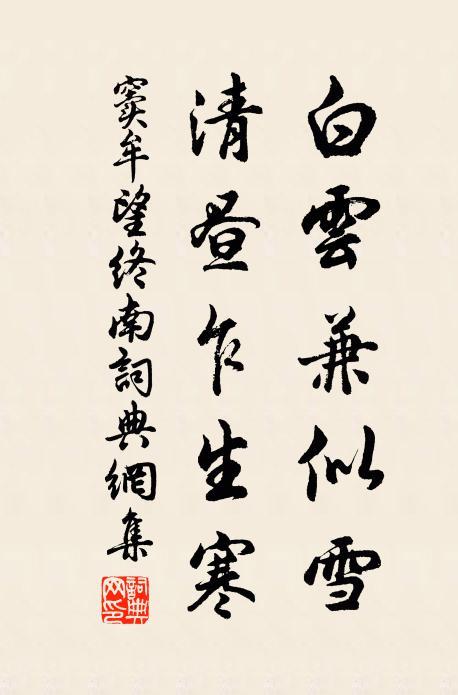 白雲兼似雪
清晝乍生寒
竇牟望終南詞典網集
詞典網印